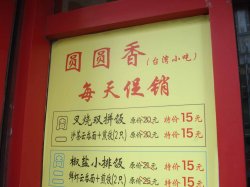 圆圆香(台湾小吃)
每天促销
周一 叉烧双拼饭 原价20元 特价15元
沙茶云吞面+煎饺(2只) 原价20元 特价15元
周二 椒盐小排饭 原价20元 特价15元
鲜虾云吞面+煎饺(2只) 原价25元 特价15元